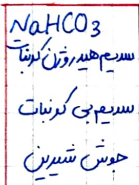 NaHCO3
سدیم هیدروژن کربنات
سدیم بی کربنات
جوش شیرین